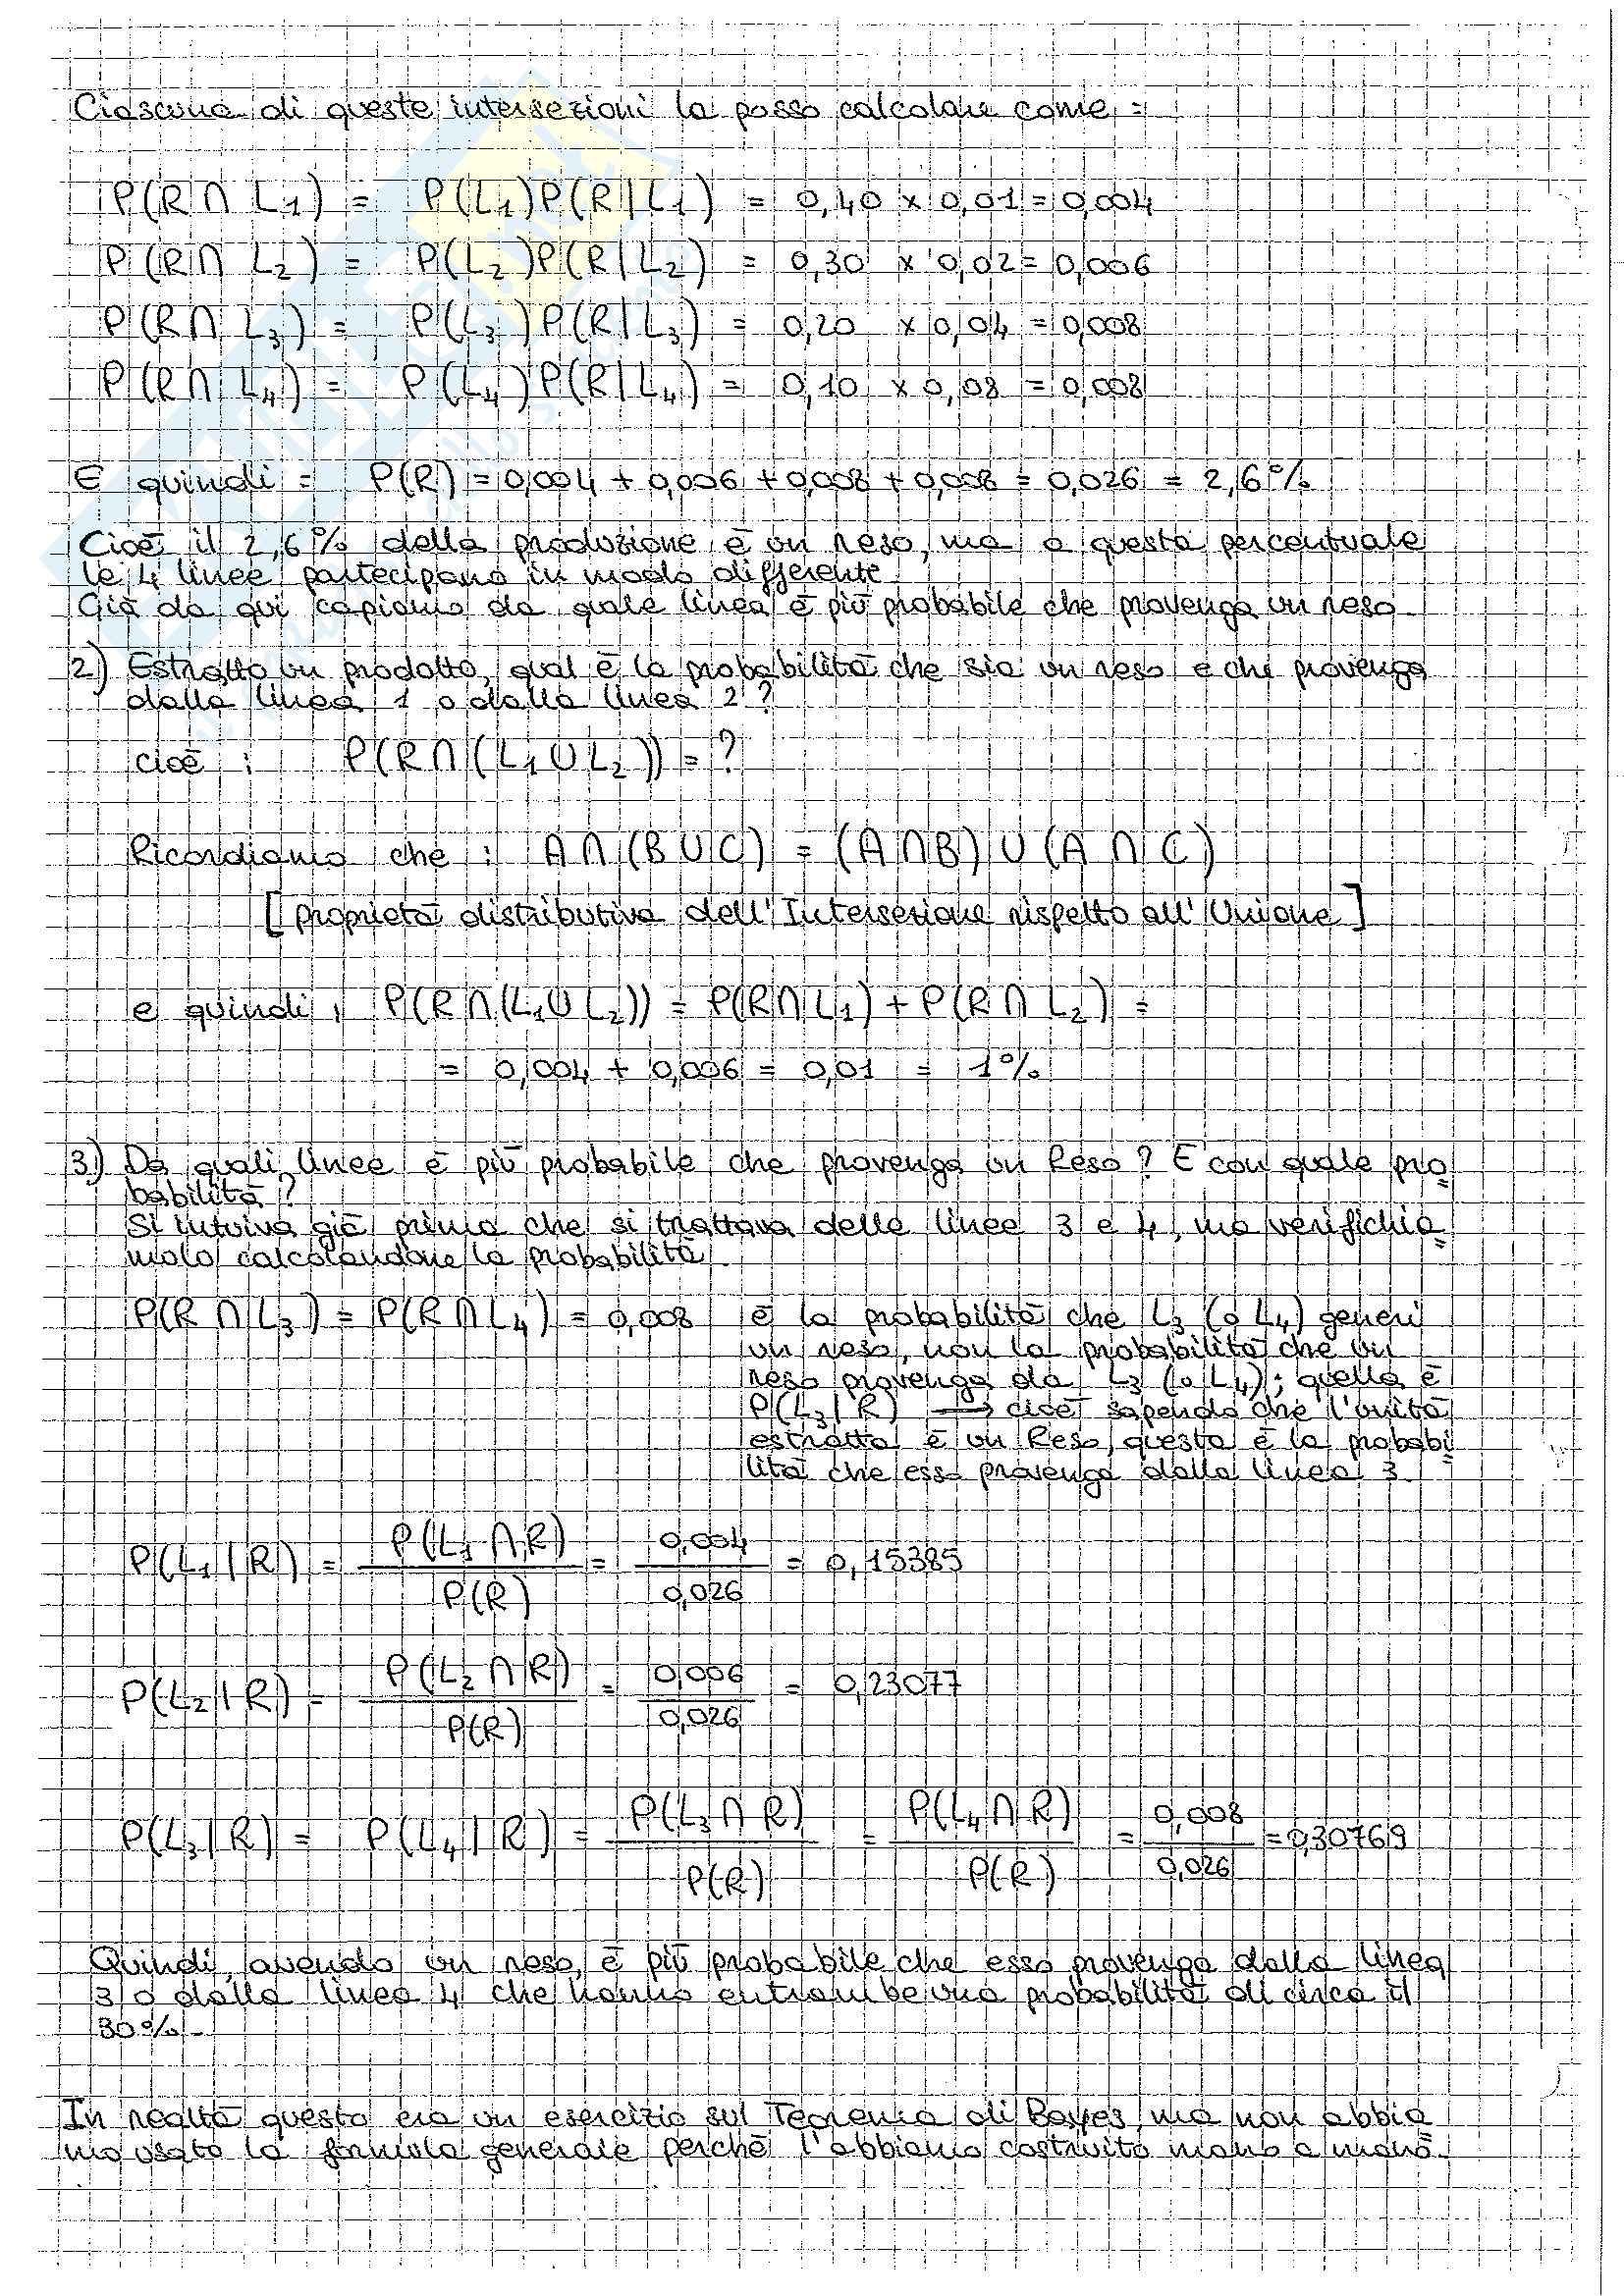 Ciascuna di queste intersezioni la posso calcolare come:
P(R ∩ L₁) = P(L₁)P(R|L₁) = 0,40 x 0,01 = 0,004
P(R ∩ L₂) = P(L₂)P(R|L₂) = 0,30 x 0,02 = 0,006
P(R ∩ L₃) = P(L₃)P(R|L₃) = 0,20 x 0,04 = 0,008
P(R ∩ L₄) = P(L₄)P(R|L₄) = 0,10 x 0,08 = 0,008
E quindi: P(R) = 0,004 + 0,006 + 0,008 + 0,008 = 0,026 = 2,6%
Cioè il 2,6% della produzione è un reso, ma a questa percentuale
le 4 linee partecipano in modo differente.
Già da qui capiamo da quale linea è più probabile che provenga un reso.
2) Estratto un prodotto, qual è la probabilità che sia un reso e che provenga
dalla linea 1 o dalla linea 2?
cioè: P(R ∩ (L₁ ∪ L₂)) = ?
Ricordiamo che: A ∩ (B ∪ C) = (A ∩ B) ∪ (A ∩ C)
[proprietà distributiva dell'Intersezione rispetto all'Unione]
e quindi: P(R ∩ (L₁ ∪ L₂)) = P(R ∩ L₁) + P(R ∩ L₂) =
= 0,004 + 0,006 = 0,01 = 1%
3) Da quali linee è più probabile che provenga un Reso? E con quale pro=
babilità?
Si intuiva già prima che si trattava delle linee 3 e 4, ma verifichia=
molo calcolandone la probabilità.
P(R ∩ L₃) = P(R ∩ L₄) = 0,008 è la probabilità che L₃ (o L₄) generi
un reso, non la probabilità che un
reso provenga da L₃ (o L₄); quella è
P(L₃|R) → cioè sapendo che l'unità
estratta è un Reso, questa è la probabi=
lità che esso provenga dalla linea 3.
P(L₁|R) = P(L₁ ∩ R) / P(R) = 0,004 / 0,026 = 0,15385
P(L₂|R) = P(L₂ ∩ R) / P(R) = 0,006 / 0,026 = 0,23077
P(L₃|R) = P(L₄|R) = P(L₃ ∩ R) / P(R) = P(L₄ ∩ R) / P(R) = 0,008 / 0,026 = 0,30769
Quindi, avendo un reso, è più probabile che esso provenga dalla linea
3 o dalla linea 4 che hanno entrambe una probabilità di circa il
30%.
In realtà questo era un esercizio sul Teorema di Bayes, ma non abbia=
mo usato la formula generale perchè l'abbiamo costruito mano a mano.